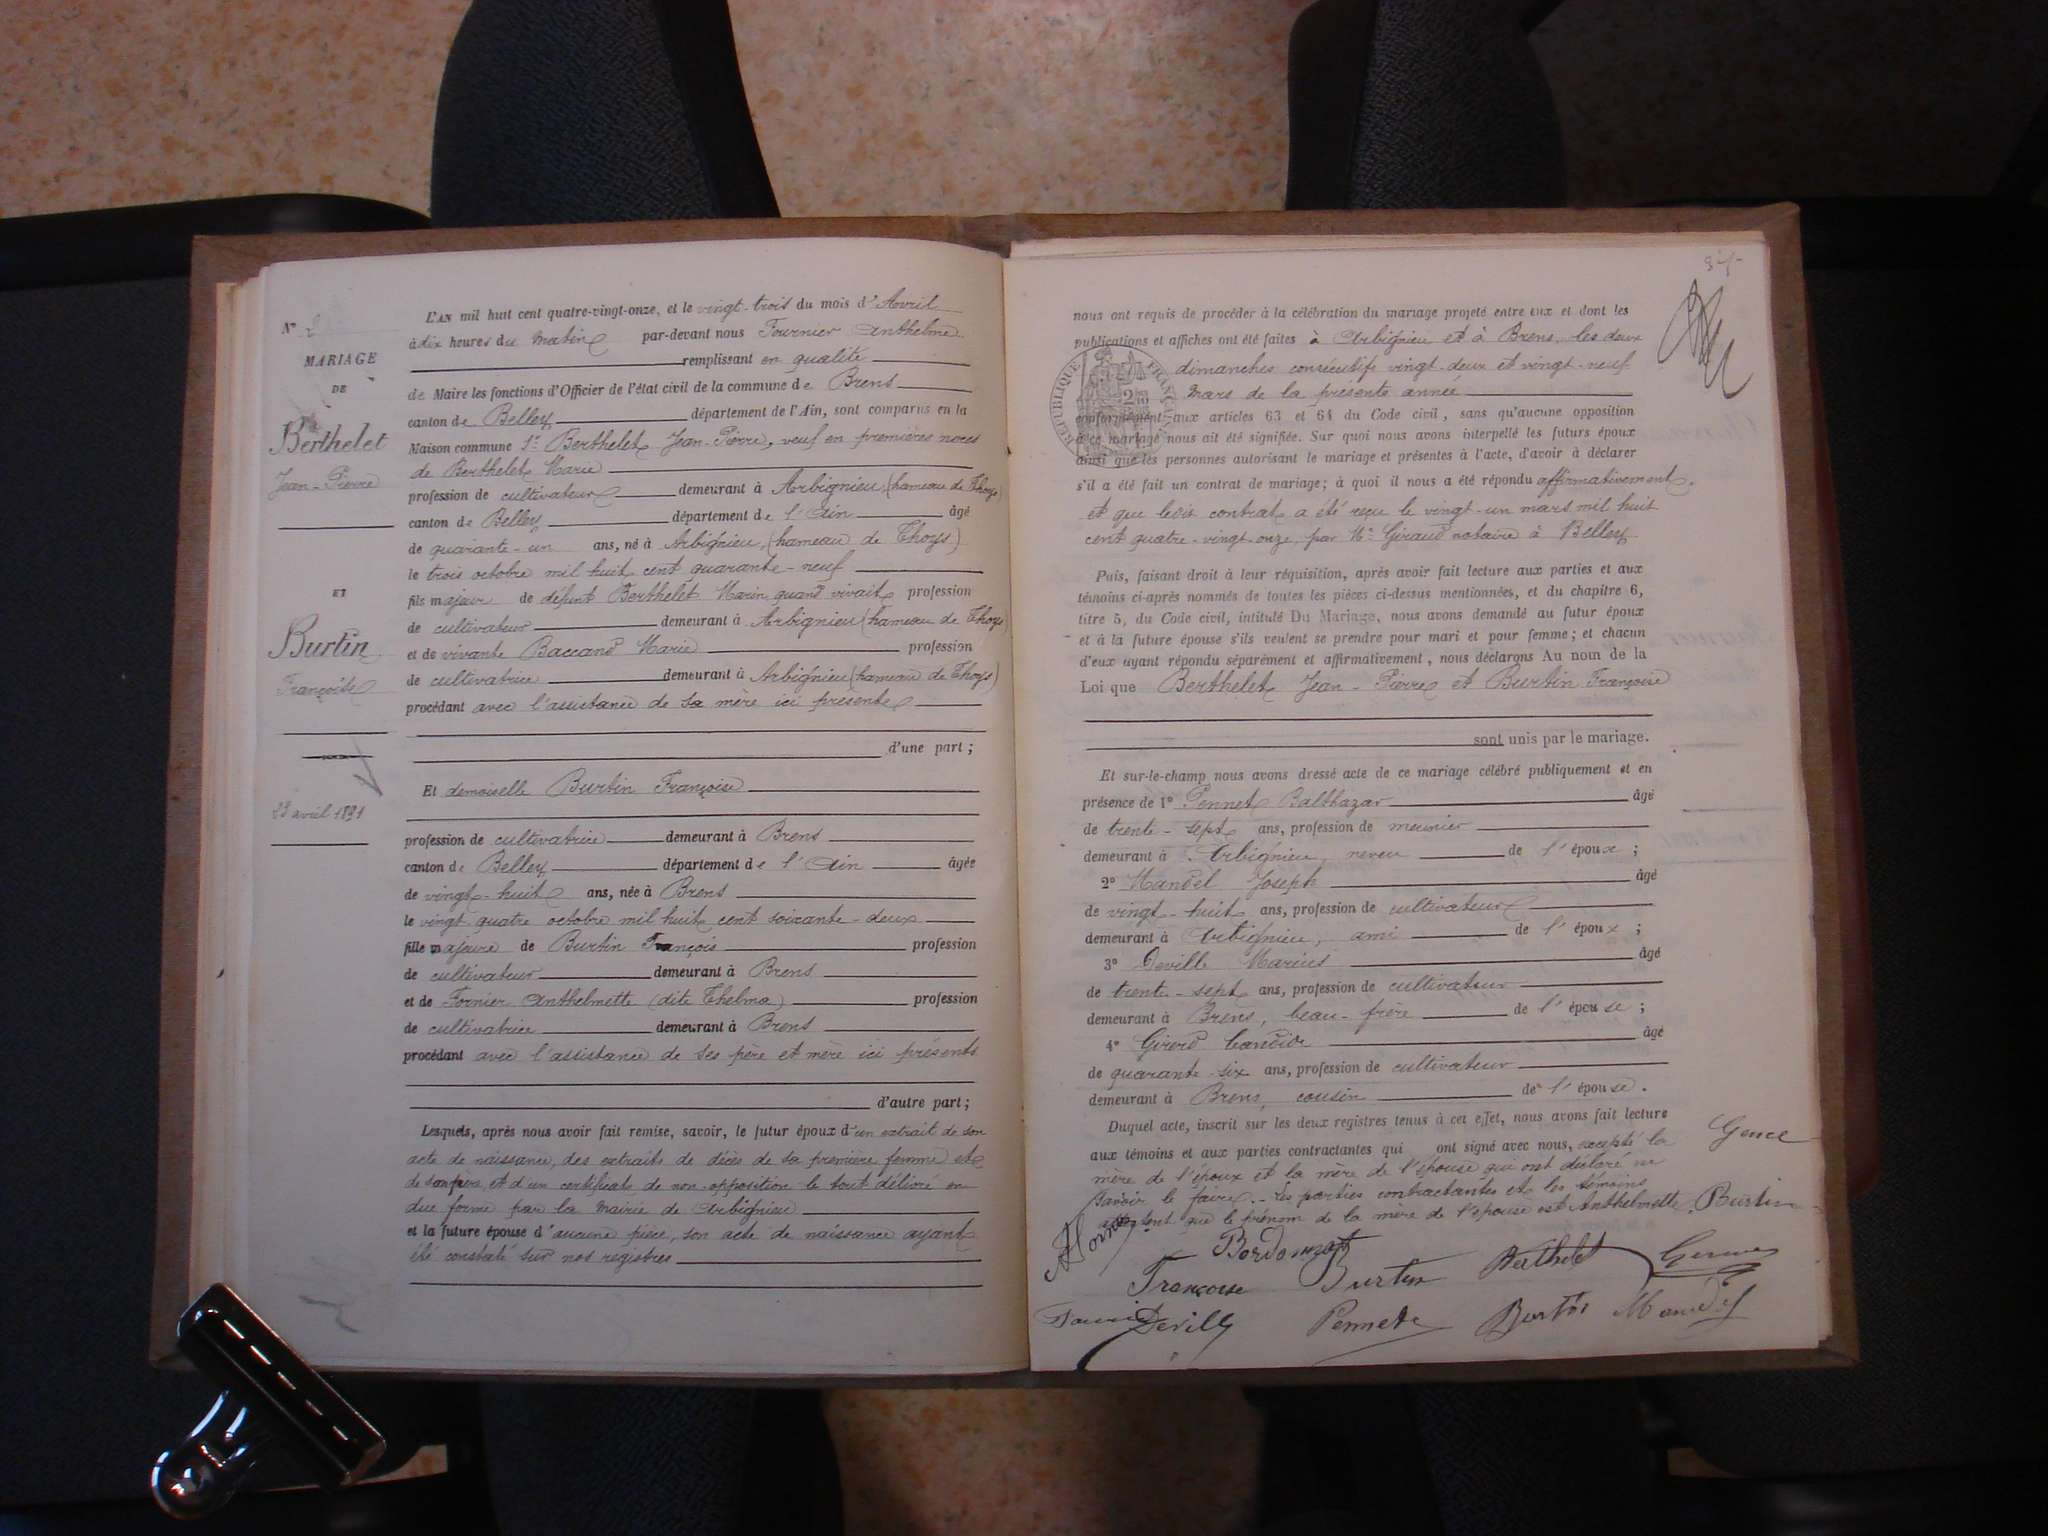 N° 2
MARIAGE
DE
Berthelet
Jean-Pierre
ET
Burtin
Françoise
23 avril 1891
L'AN mil huit cent quatre-vingt-onze, et le vingt-trois du mois d'Avril
à dix heures du matin par-devant nous Fournier Anthelme
remplissant en qualité
de Maire les fonctions d'Officier de l'état civil de la commune de Brens
canton de Belley département de l'Ain, sont comparus en la
Maison commune 1° Berthelet Jean-Pierre, veuf en premières noces
de Berthelet Marie
profession de cultivateur demeurant à Arbignieu, (hameau de Thoys)
canton de Belley département de l'Ain âgé
de quarante-un ans, né à Arbignieu, (hameau de Thoys)
le trois octobre mil huit cent quarante-neuf
fils majeur de défunt Berthelet Marin quand vivait profession
de cultivateur demeurant à Arbignieu (hameau de Thoys)
et de vivante Baccand Marie profession
de cultivatrice demeurant à Arbignieu (hameau de Thoys)
procédant avec l'assistance de sa mère ici présente
d'une part ;
Et demoiselle Burtin Françoise
profession de cultivatrice demeurant à Brens
canton de Belley département de l'Ain âgée
de vingt-huit ans, née à Brens
le vingt-quatre octobre mil huit cent soixante-deux
fille majeure de Burtin François profession
de cultivateur demeurant à Brens
et de Fornier Anthelmette (dite Thelma) profession
de cultivatrice demeurant à Brens
procédant avec l'assistance de ses père et mère ici présents
d'autre part ;
Lesquels, après nous avoir fait remise, savoir, le futur époux d'un extrait de son
acte de naissance, des extraits de décès de sa première femme et
de son père, et d'un certificat de non-opposition le tout délivré en
due forme par la mairie de Arbignieu
et la future épouse d'aucune pièce, son acte de naissance ayant
été constaté sur nos registres
nous ont requis de procéder à la célébration du mariage projeté entre eux et dont les
publications et affiches ont été faites à Arbignieu et à Brens, les deux
dimanches consécutifs vingt-deux et vingt-neuf
mars de la présente année
RÉPUBLIQUE FRANÇAISE
conformément aux articles 63 et 64 du Code civil, sans qu'aucune opposition
à ce mariage nous ait été signifiée. Sur quoi nous avons interpellé les futurs époux
ainsi que les personnes autorisant le mariage et présentes à l'acte, d'avoir à déclarer
s'il a été fait un contrat de mariage ; à quoi il nous a été répondu affirmativement
et que ledit contrat a été reçu le vingt-un mars mil huit
cent quatre-vingt-onze, par Me Giraud notaire à Belley
Puis, faisant droit à leur réquisition, après avoir fait lecture aux parties et aux
témoins ci-après nommés de toutes les pièces ci-dessus mentionnées, et du chapitre 6,
titre 5, du Code civil, intitulé Du Mariage, nous avons demandé au futur époux
et à la future épouse s'ils veulent se prendre pour mari et pour femme ; et chacun
d'eux ayant répondu séparément et affirmativement, nous déclarons Au nom de la
Loi que Berthelet Jean-Pierre et Burtin Françoise
sont unis par le mariage.
Et sur-le-champ nous avons dressé acte de ce mariage célébré publiquement et en
présence de 1° Pennet Balthazar âgé
de trente-sept ans, profession de meunier
demeurant à Arbignieu, neveu de l'époux ;
2° Mandel Joseph âgé
de vingt-huit ans, profession de cultivateur
demeurant à Arbignieu, ami de l'époux ;
3° Deville Marius âgé
de trente-sept ans, profession de cultivateur
demeurant à Brens, beau-frère de l'épouse ;
4° Girerd Candide âgé
de quarante-six ans, profession de cultivateur
demeurant à Brens, cousin de l'épouse.
Duquel acte, inscrit sur les deux registres tenus à cet effet, nous avons fait lecture
aux témoins et aux parties contractantes qui ont signé avec nous, excepté la
mère de l'époux et la mère de l'épouse qui ont déclaré ne
savoir le faire. - Les parties contractantes et les témoins
attestent que le prénom de la mère de l'épouse est Anthelmette. Burtin
Françoise Burtin Berthelet
Deville Pennet Burtin Mandel